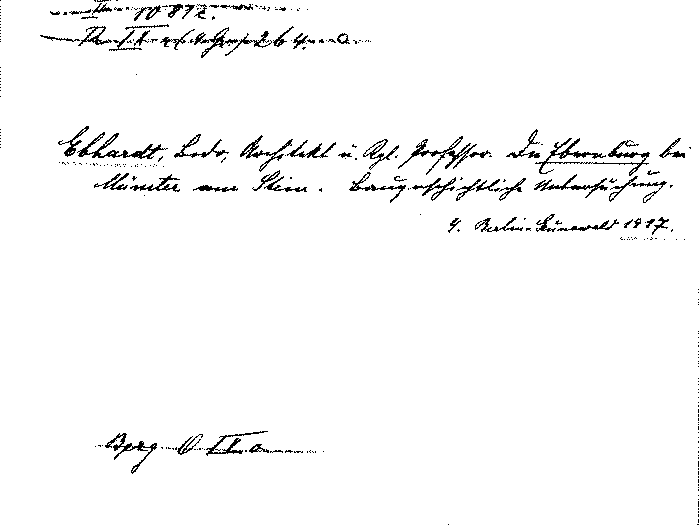 II 10812.
R II
Ebhardt, Bodo, Architekt u. Kgl. Professor. Die Ebernburg bei
Münster am Stein. Baugeschichtliche Untersuchung.
4. Berlin-Grunewald 1917.
O II a